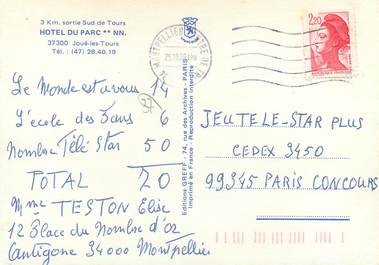 3 Km. sortie Sud de Tours
HOTEL DU PARC ** NN.
37300 Joué-les-Tours
Tél. : (47) 28.40.19
Le Monde est à vous 14
L'école des fans 6
Nombre Télé Star 50
TOTAL 20
Mme TESTON Elise
12 Place du Nombre d'or
Antigone 34000 Montpellier
Editions GREFF - 74, rue des Archives - PARIS
Imprimé en France - Reproduction interdite
MONTPELLIER
2,20
JEU TELE-STAR PLUS
CEDEX 3450
99345 PARIS CONCOURS